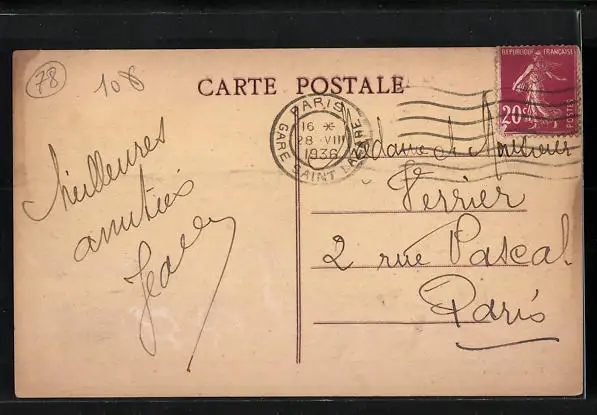 78
108
CARTE POSTALE
RÉPUBLIQUE FRANÇAISE
20c
POSTES
PARIS
GARE SAINT LAZARE
16 H
28 -VIII
1936
Meilleures
amitiés
Madame et Monsieur
Verrier
2 rue Pascal
Paris